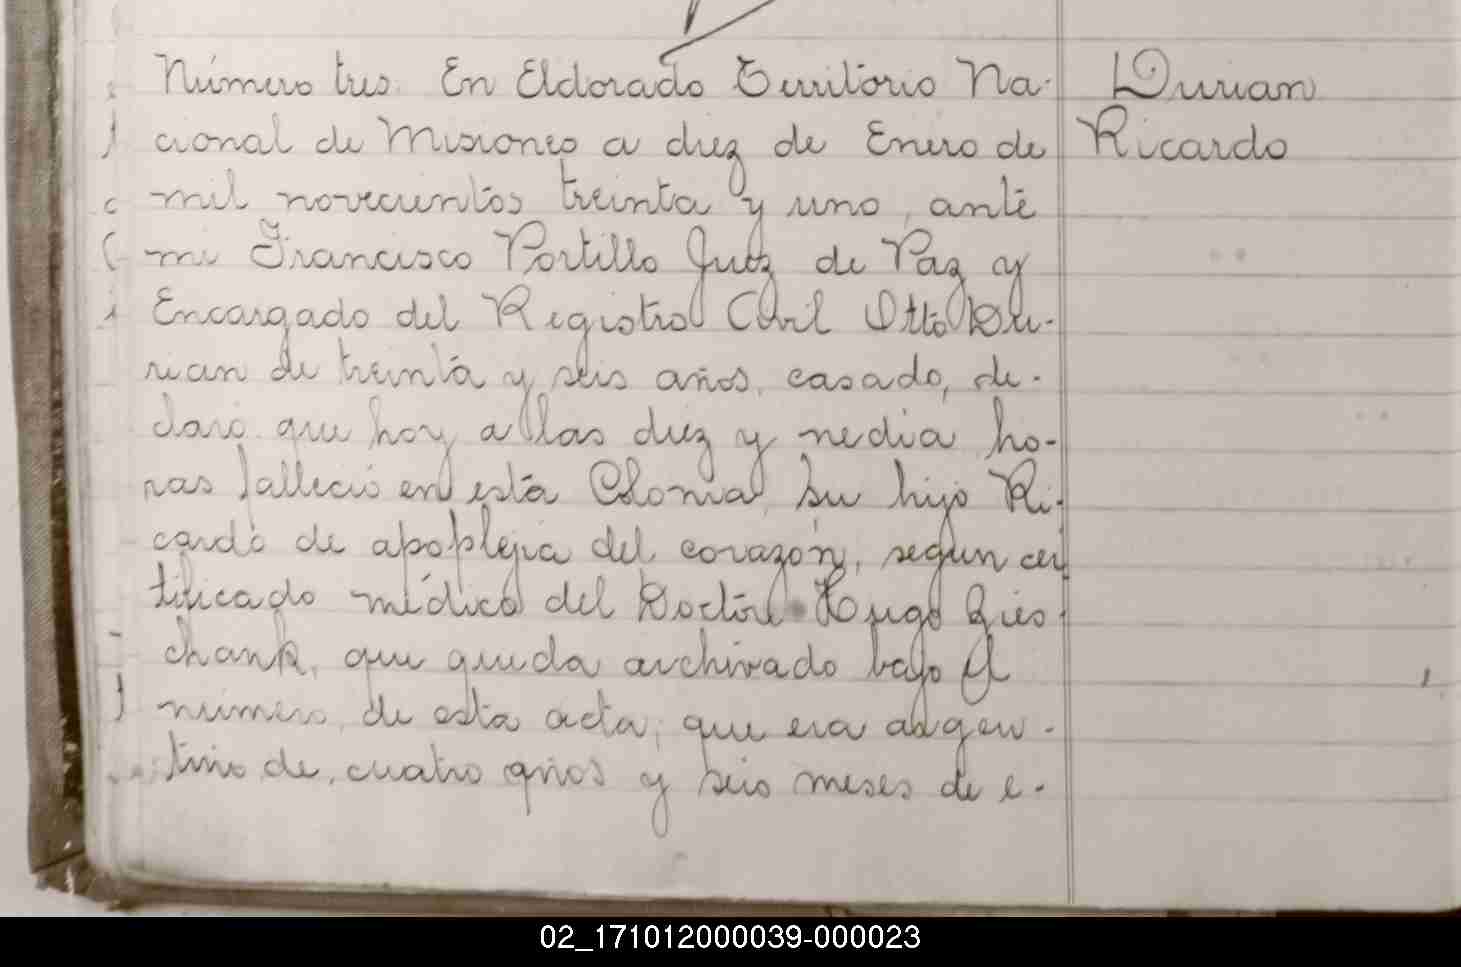 Número tres. En Eldorado Territorio Na-
cional de Misiones a diez de Enero de
mil novecientos treinta y uno, ante
mi Francisco Portillo Juez de Paz y
Encargado del Registro Civil Otto Du-
rian de treinta y seis años, casado, de-
claró que hoy a las diez y media ho-
ras falleció en esta Colonia, su hijo Ri-
cardo de apoplejia del corazón, segun cer
tificado médico del Doctor Hugo
chank, que queda archivado bajo el
número de esta acta; que era argen-
tino de cuatro años y seis meses de e-
Durian
Ricardo
02_171012000039-000023